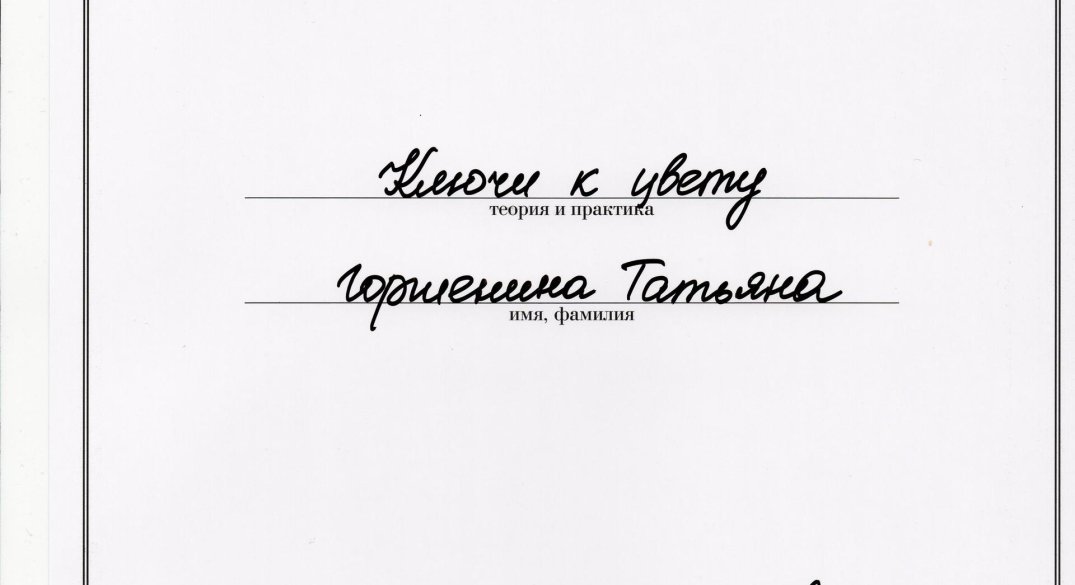 Ключи к цвету
теория и практика
Горшенина Татьяна
имя, фамилия